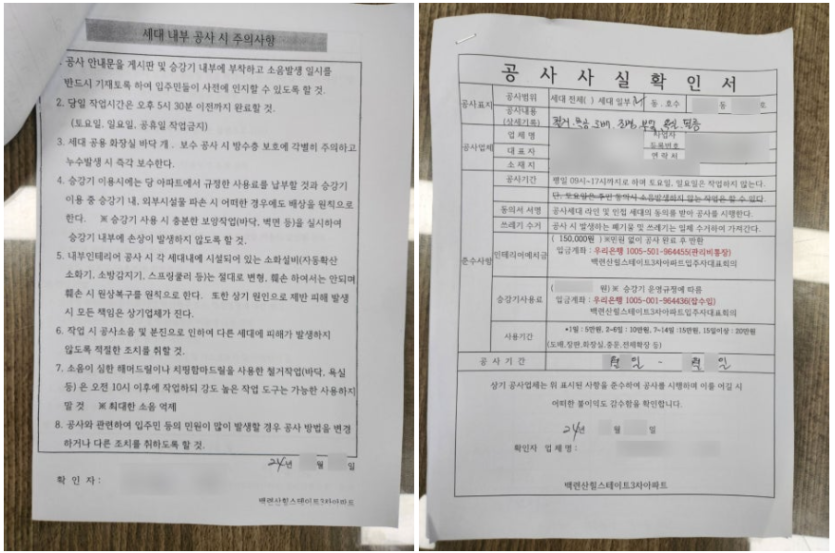 세대 내부 공사 시 주의사항
1. 공사 안내문을 게시판 및 승강기 내부에 부착하고 소음발생 일시를
반드시 기재토록 하여 입주민들이 사전에 인지할 수 있도록 할 것.
2. 당일 작업시간은 오후 5시 30분 이전까지 완료할 것.
(토요일, 일요일, 공휴일 작업금지)
3. 세대 공용 화장실 바닥 개 . 보수 공사 시 방수층 보호에 각별히 주의하고
누수발생 시 즉각 보수한다.
4. 승강기 이용시에는 당 아파트에서 규정한 사용료를 납부할 것과 승강기
이용 중 승강기 내, 외부시설을 파손 시 어떠한 경우에도 배상을 원칙으로
한다. ※ 승강기 사용 시 충분한 보양작업(바닥, 벽면 등)을 실시하여
승강기 내부에 손상이 발생하지 않도록 할 것.
5. 내부인테리어 공사 시 각 세대내에 시설되어 있는 소화설비(자동확산
소화기, 소방감지기, 스프링쿨러 등)는 절대로 변형, 훼손 하여서는 안되며
훼손 시 원상복구를 원칙으로 한다. 또한 상기 원인으로 제반 피해 발생
시 모든 책임은 상기업체가 진다.
6. 작업 시 공사소음 및 분진으로 인하여 다른 세대에 피해가 발생하지
않도록 적절한 조치를 취할 것.
7. 소음이 심한 해머드릴이나 치핑함마드릴을 사용한 철거작업(바닥, 욕실
등)은 오전 10시 이후에 작업하되 강도 높은 작업 도구는 가능한 사용하지
말 것 ※ 최대한 소음 억제
8. 공사와 관련하여 입주민 등의 민원이 많이 발생할 경우 공사 방법을 변경
하거나 다른 조치를 취하도록 할 것.
24년 월 일
확 인 자 :
백련산힐스테이트3차아파트
공 사 사 실 확 인 서
공사표지 공사범위 세대 전체( ) 세대 일부 동 . 호수 동 호
공사내용
(상세기록)
공사업체 업 체 명 사업자
등록번호
대 표 자 연 락 처
소 재 지
준수사항 공사기간 평일 09시~17시까지로 하며 토요일, 일요일은 작업하지 않는다.
동의서 서명 공사세대 라인 및 인접 세대의 동의를 받아 공사를 시행한다.
쓰레기 수거 공사 시 발생하는 폐기물 및 쓰레기는 업체 수거하여 가져간다.
인테리어예치금 ( 150,000원 ) ※민원 없이 공사 완료 후 반환
입금계좌 : 우리은행 1005-501-964455(관리비통장)
백련산힐스테이트3차아파트입주자대표회의
승강기사용료 ( 원) ※ 승강기 운영규정에 따름
입금계좌 : 우리은행 1005-001-964436(잡수입)
백련산힐스테이트3차아파트입주자대표회의
사용기간 •1일 : 5만원, 2~6일 : 10만원, 7~14일 : 15만원, 15일이상 : 20만원
(도배,장판,화장실,중문,전체확장 등)
공 사 기 간 월 일 ~ 월 일
상기 공사업체는 위 표시된 사항을 준수하여 공사를 시행하며 이를 어길 시
어떠한 불이익도 감수함을 확인합니다.
24년 월 일
확인자 업 체 명 :
백련산힐스테이트3차아파트